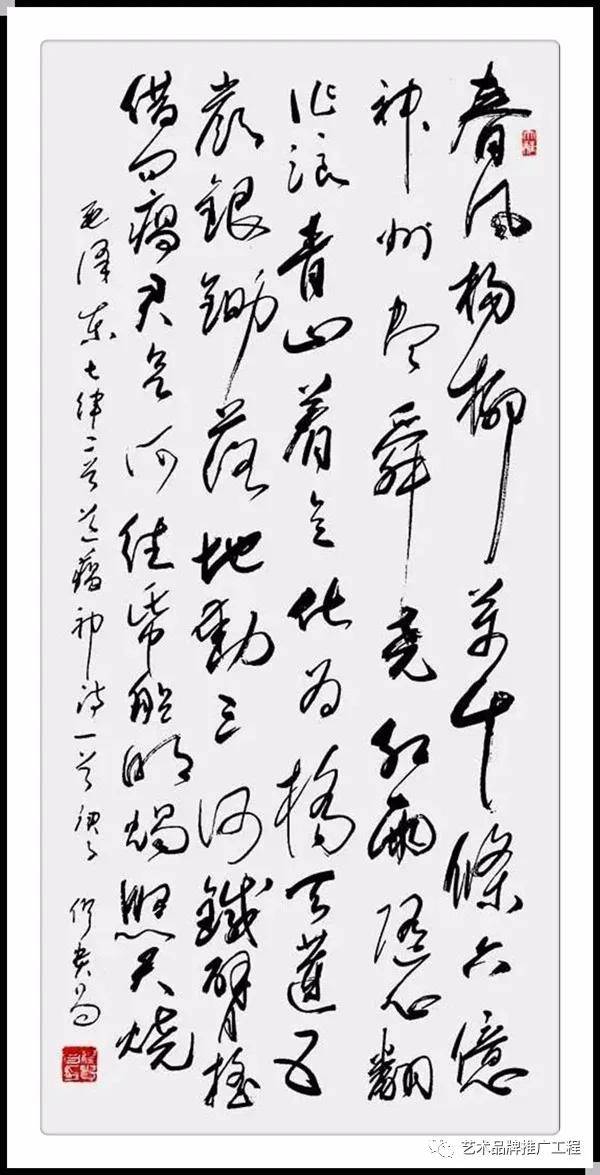 春风杨柳萬千條六億
神州尽舜尧红雨随心翻
作浪青山着意化为橋天連五
嶺銀鋤落地動三河鐵臂摇
借问瘟君欲何往纸船明烛照天烧
毛泽东七律二首送瘟神诗一首庚子
艺术品牌推广工程